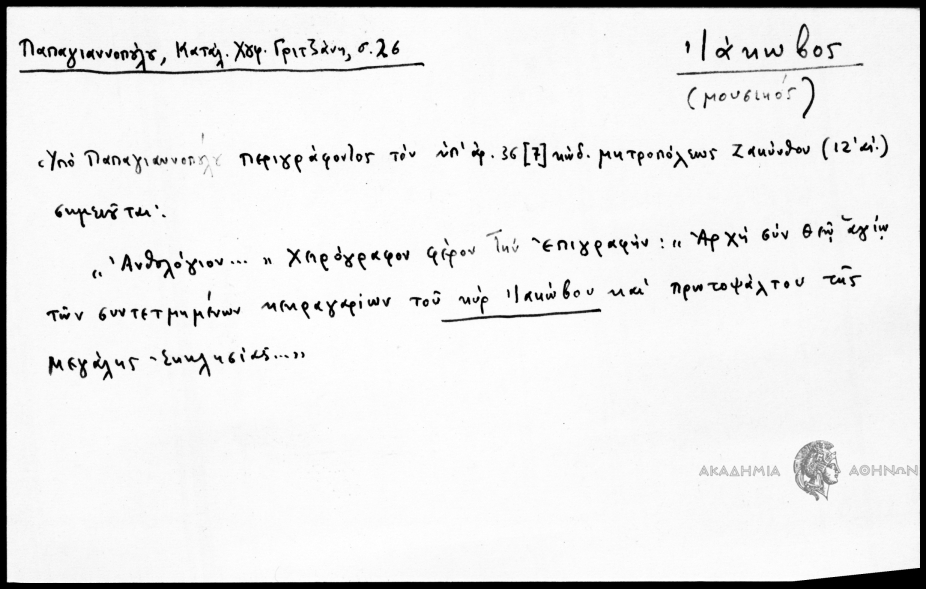 Παπαγιαννοπούλου, Κατάλ. Χφ. Γριτζάνη, σ. 26
Ἰάκωβος
(μουσικός)
«Ὑπὸ Παπαγιαννοπούλου περιγράφοντος τὸν ὑπ' ἀρ. 36 [7] κώδ. μητροπόλεως Ζακύνθου (12' αἰ.)
σημειοῦται:
«Ἀνθολόγιον...» Χειρόγραφον φέρον τὴν ἐπιγραφήν: «Ἀρχὴ σὺν θεῷ ἁγίῳ
τῶν συντετμημένων κεκραγαρίων τοῦ κὺρ Ἰακώβου καὶ πρωτοψάλτου τῆς
Μεγάλης Ἐκκλησίας...»
ΑΚΑΔΗΜΙΑ ΑΘΗΝΩΝ